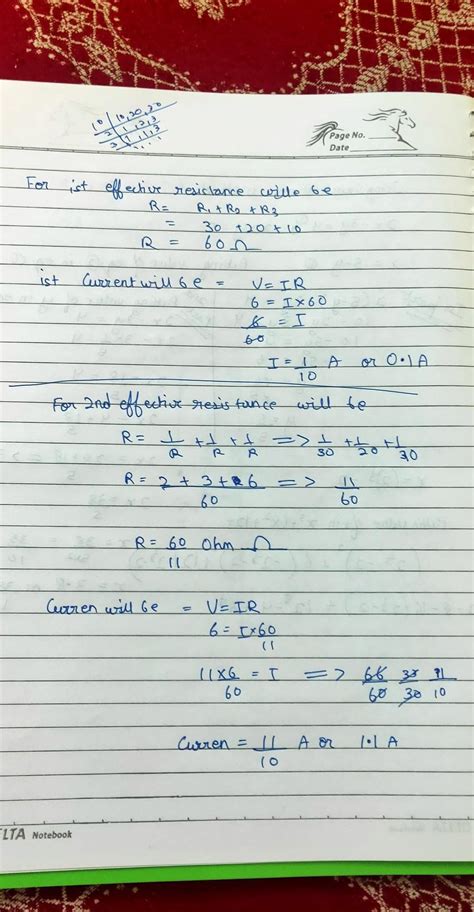 10 | 10, 20, 30
2 | 1, 2, 3
3 | 1, 1, 3
1, 1, 1
Page No.
Date
For ist effective resistance wille be
R = R1 + R2 + R3
= 30 + 20 + 10
R = 60 Ω
ist Current will be = V = IR
6 = I × 60
6/60 = I
I = 1/10 A or 0.1 A
For 2nd effective resistance will be
R = 1/R + 1/R + 1/R => 1/30 + 1/20 + 1/30
R = 2 + 3 + 6/60 => 11/60
R = 60/11 Ohm Ω
Curren will be = V = IR
6 = I × 60/11
11 × 6/60 = I => 66/60 33/30 11/10
Curren = 11/10 A or 1.1 A
LTA Notebook